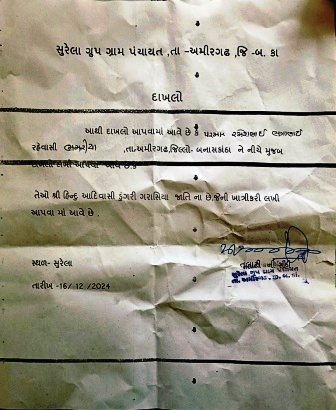 સુરેલા ગ્રુપ ગ્રામ પંચાયત ,તા -અમીરગઢ ,જિ -બ. કા
દાખલો
આથી દાખલો આપવામાં આવે છે કે પરમાર રમેશભાઈ
રહેવાસી ,તા.અમીરગઢ,જિલ્લો- બનાસકાંઠા ને નીચે મુજબ
દાખલો લખી આપવા આવે છે.કે
તેઓ શ્રી હિન્દુ આદિવાસી ડુંગરી ગરાસિયા જાતિ ના છે.જેની ખાત્રીકરી લખી
આપવા માં આવે છે .
સ્થળ- સુરેલા
તારીખ -16/ 12 /2024
તલાટી
સુરેલા ગ્રુપ ગ્રામ પંચાયત
તા. અમીરગઢ, જી. બ.કાં.